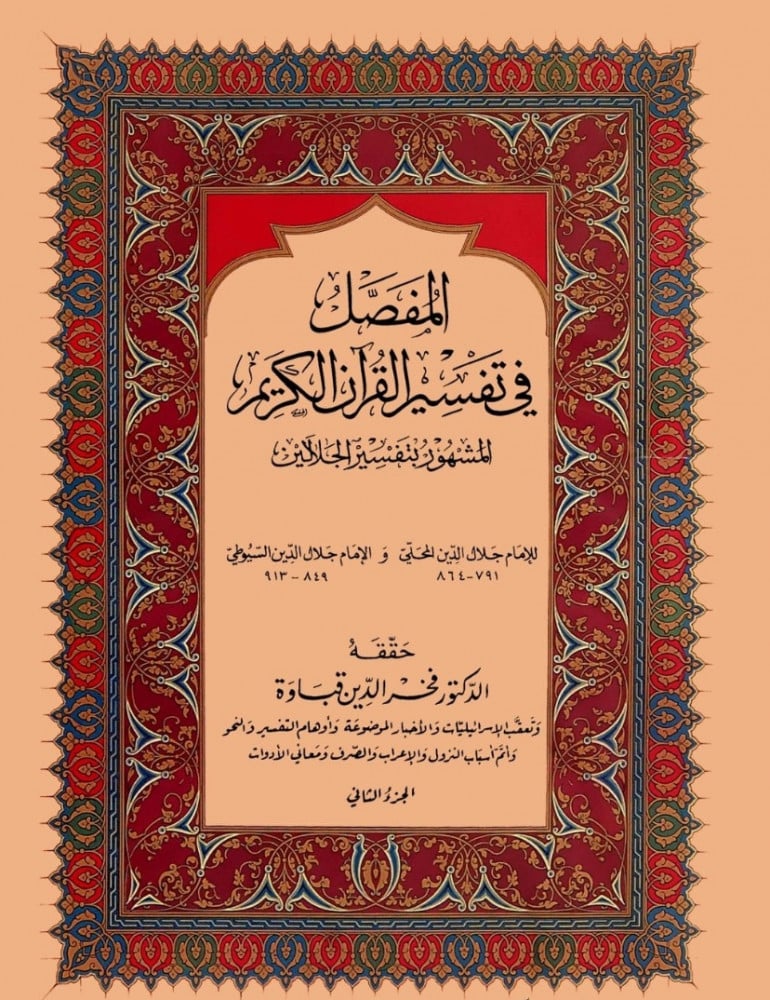 المُفَصَّلُ
في تَفسِيْرِ القُرآنِ الكَرِيْمِ
المَشهُورُ بتَفسِيْرِ الجَلَالَين
للإمَام جَلَال الدِّين المحَليّ وَ الإمَام جَلَال الدِّين السّيُوطيّ
٧٩١-٨٦٤ ٨٤٩-٩١٣
حَقَّقَهُ
الدّكتور فَخر الدِّين قبَاوَة
وَتعقَّبَ الإسرائيليّات وَالأخبَار الموضوعَة وَأوهَام التفسير وَالنحو
وَأتمَّ أسبَاب النزول وَالإعراب وَالصّرف وَمَعَاني الأدوات
الجزءُ الثاني